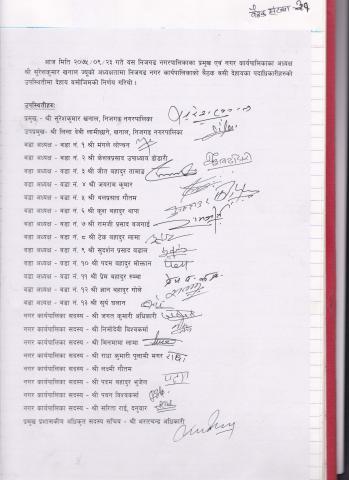 बैठक संख्या - २१
आज मिति २०७५/०९/२१ गते यस निजगढ नगरपालिकाका प्रमुख एवं नगर कार्यपालिकाका अध्यक्ष
श्री सुरेशकुमार खनाल ज्यूको अध्यक्षतामा निजगढ नगर कार्यपालिकाको बैठक बसी देहायका पदाधिकारीहरुको
उपस्थितीमा देहाय बमोजिमको निर्णय गरियो ।
उपस्थितीहरुः
प्रमुख - श्री सुरेशकुमार खनाल, निजगढ नगरपालिका
उपप्रमुख - श्री लिला देवी लामीछाने, खनाल, निजगढ नगरपालिका
वडा अध्यक्ष - वडा नं. १ श्री मंगले लोप्चन
वडा अध्यक्ष - वडा नं. २ श्री केशवप्रसाद उपाध्याय डोटारी
वडा अध्यक्ष - वडा नं. ३ श्री जीत बहादुर तामाङ
वडा अध्यक्ष - वडा नं. ४ श्री जयराम कुमार
वडा अध्यक्ष - वडा नं. ५ श्री बलप्रसाद गौतम
वडा अध्यक्ष - वडा नं. ६ श्री कुमा बहादुर थापा
वडा अध्यक्ष - वडा नं. ७ श्री रामजी प्रसाद बजगाई
वडा अध्यक्ष - वडा नं. ८ श्री टेक बहादुर लामा
वडा अध्यक्ष - वडा नं. ९ श्री सुदर्शन प्रसाद दाहाल
वडा अध्यक्ष - वडा नं. १० श्री पदम बहादुर मोक्तान
वडा अध्यक्ष - वडा नं. ११ श्री प्रेम बहादुर रुम्बा
वडा अध्यक्ष - वडा नं. १२ श्री ज्ञान बहादुर गोले
वडा अध्यक्ष - वडा नं. १३ श्री सुर्य घलान
नगर कार्यपालिका सदस्य - श्री जगत कुमारी अधिकारी
नगर कार्यपालिका सदस्य - श्री निमादेवी विश्वकर्मा
नगर कार्यपालिका सदस्य - श्री बिलमाया लामा
नगर कार्यपालिका सदस्य - श्री राधा कुमारी पुलामी मगर
नगर कार्यपालिका सदस्य - श्री लक्ष्मी गौतम
नगर कार्यपालिका सदस्य - श्री पदम बहादुर भुजेल
नगर कार्यपालिका सदस्य - श्री पवन विश्वकर्मा
नगर कार्यपालिका सदस्य - श्री सरिता राई, दनुवार
प्रमुख प्रशासकीय अधिकृत सदस्य सचिव - श्री भरतचन्द्र अधिकारी